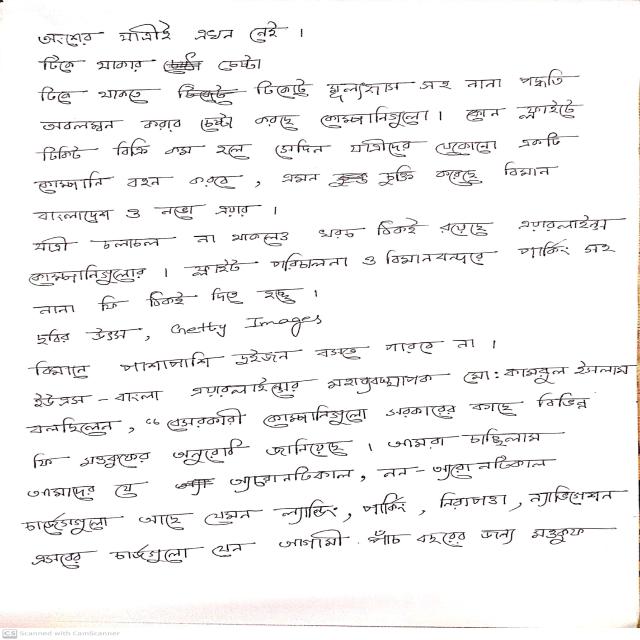 অংশের যাত্রীই এখন নেই ।
টিকে থাকার চেষ্টা
টিকে থাকতে টিকেটে মূল্যহ্রাস সহ নানা পদ্ধতি
অবলম্বন করার চেষ্টা করছে কোম্পানিগুলো। কোন ফ্লাইটে
টিকিট বিক্রি কম হলে সেদিন যাত্রীদের যেকোনো একটি
কোম্পানি বহন করবে, এমন চুক্তি করেছে বিমান
বাংলাদেশ ও নভো এয়ার ।
যাত্রী চলাচল না থাকলেও খরচ ঠিকই রয়েছে এয়ারলাইন্স
কোম্পানিগুলোর । ফ্লাইট পরিচালনা ও বিমানবন্দরে পার্কিং সহ
নানা ফি ঠিকই দিতে হচ্ছে ।
ছবির উৎস, Getty Images
বিমানে পাশাপাশি দুইজন বসতে পারবে না ।
ইউএস-বাংলা এয়ারলাইন্সের মহাব্যবস্থাপক মো: কামরুল ইসলাম
বলছিলেন, "বেসরকারী কোম্পানিগুলো সরকারের কাছে বিভিন্ন
ফি মওকুফের অনুরোধ জানিয়েছে । আমরা চাচ্ছিলাম
আমাদের যে অ্যারোনটিকাল, নন-অ্যারোনটিকাল
চার্জগুলো আছে যেমন ল্যান্ডিং, পার্কিং, নিরাপত্তা, ন্যাভিগেশন
এসবের চার্জগুলো যেন আগামী পাঁচ বছরের জন্য মওকুফ
CS Scanned with CamScanner